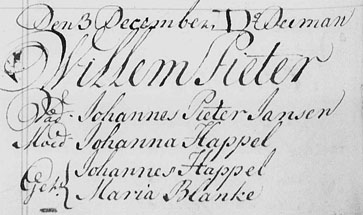 Den 3 December, Ds Deeman
Willem Pieter
Vad. Johannes Pieter Jansen
Moed Johanna Happel
Get. Johannes Happel
Maria Blanke